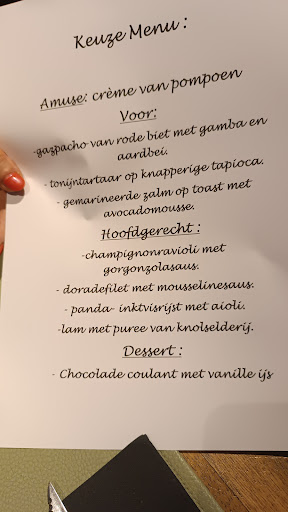 Keuze Menu :
Amuse: crème van pompoen
Voor:
-gazpacho van rode biet met gamba en
aardbei.
- tonijntartaar op knapperige tapioca.
- gemarineerde zalm op toast met
avocadomousse.
Hoofdgerecht :
-champignonravioli met
gorgonzolasaus.
- doradefilet met mousselinesaus.
- panda- inktvisrijst met aioli.
-lam met puree van knolselderij.
Dessert :
- Chocolade coulant met vanille ijs